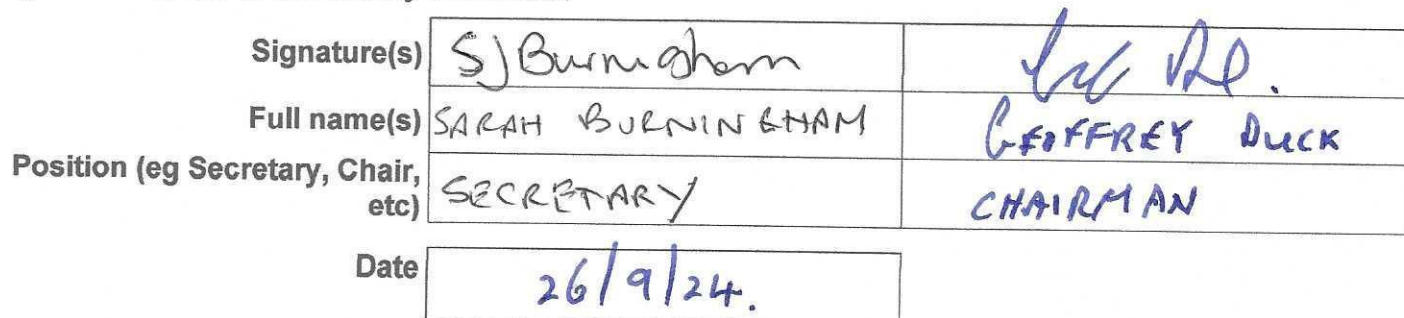 Signature(s) SJ Burningham
Full name(s) SARAH BURNINGHAM GEOFFREY DUCK
Position (eg Secretary, Chair, etc) SECRETARY CHAIRMAN
Date 26/9/24.